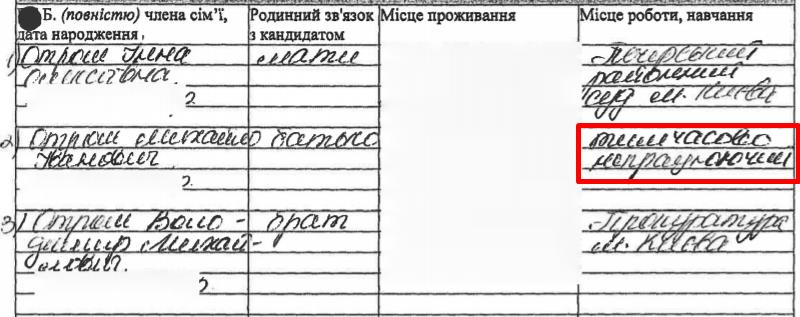 Б. (повністю) члена сім'ї, дата народження,
Родинний зв'язок з кандидатом
Місце проживання
Місце роботи, навчання
1) Отрош Інна
Олексіївна
мати
Печерський
районний
суд м. Києва
2) Отрош Михайло
Іванович
батько
тимчасово
непрацюючий
3) Отрош Воло-
димир Михай-
лович.
брат
Прокуратура
м. Києва